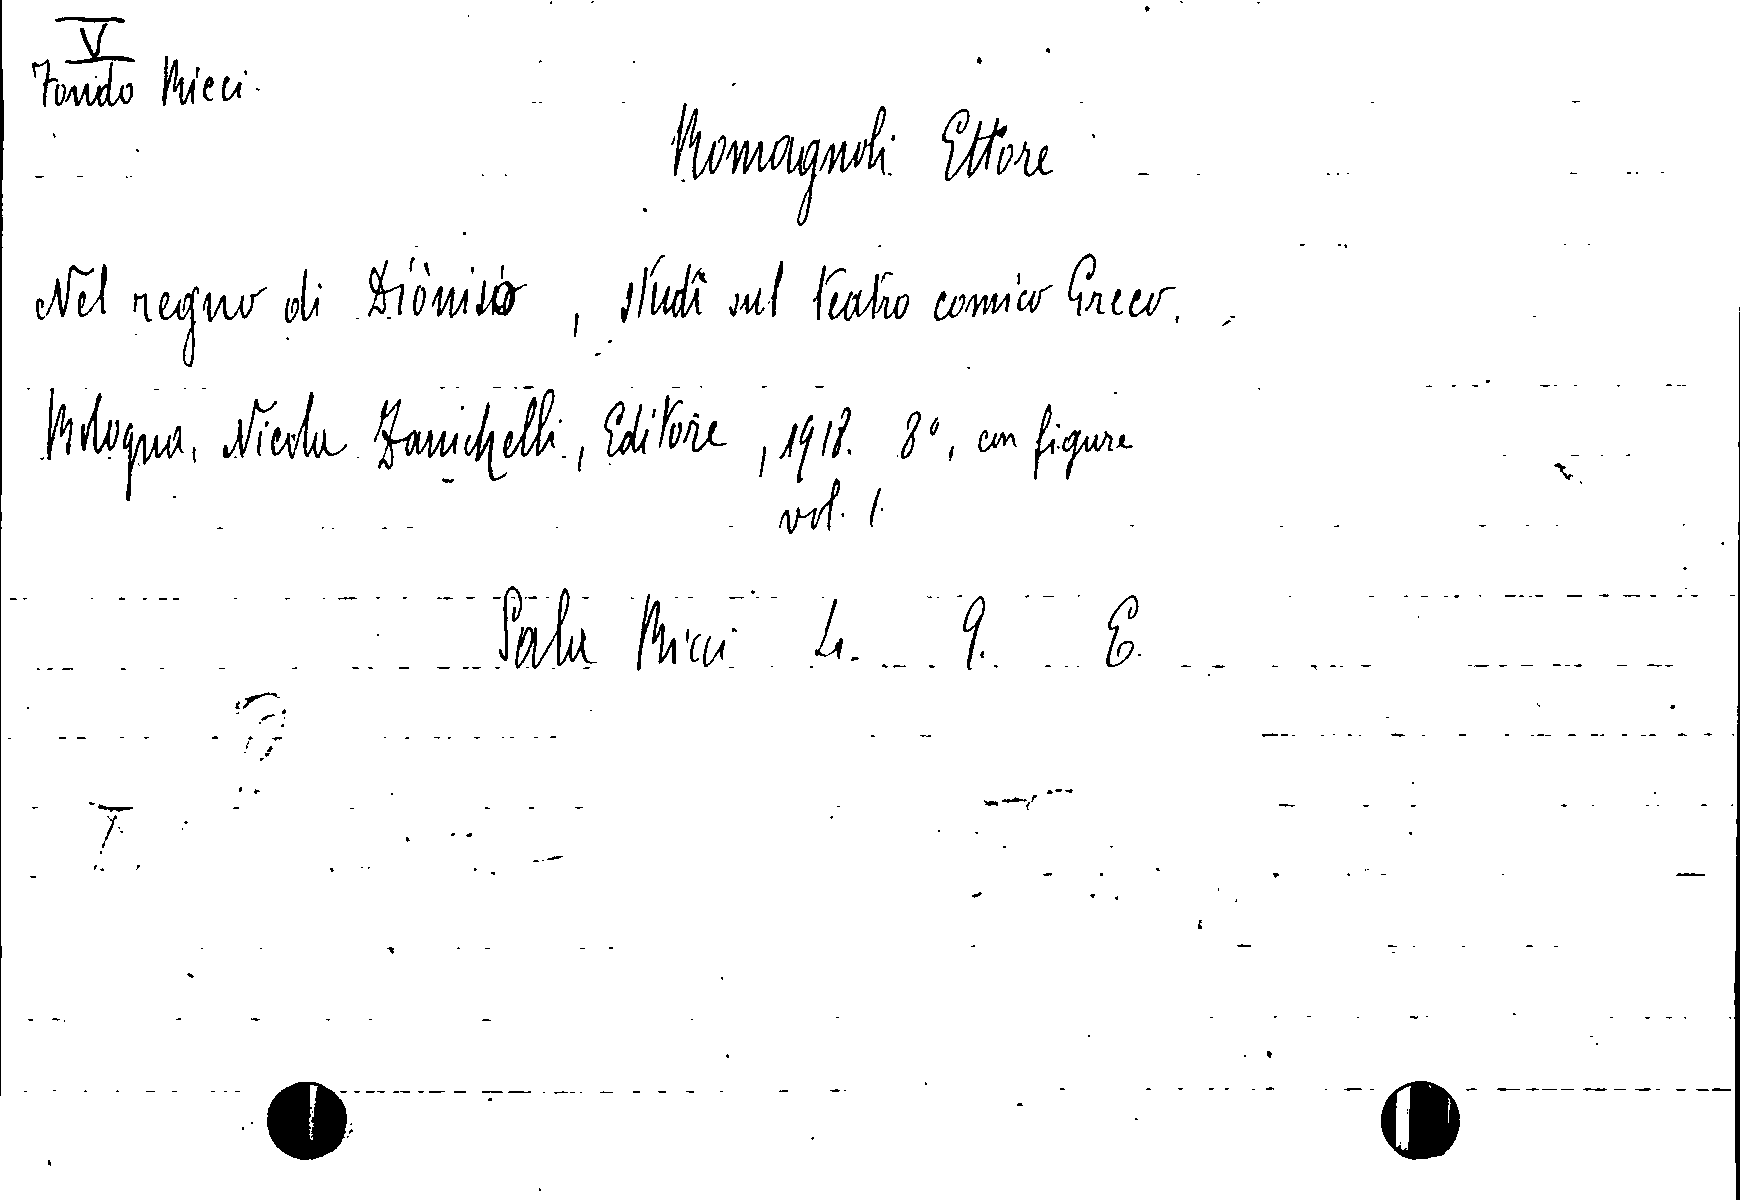 V
Fondo Ricci.
Romagnoli Ettore
Nel regno di Dioniso, studî sul teatro comico Greco.
Bologna, Nicola Zanichelli, Editore, 1918. 8°, con figure
vol. 1.
Sala Ricci L. 9. E.